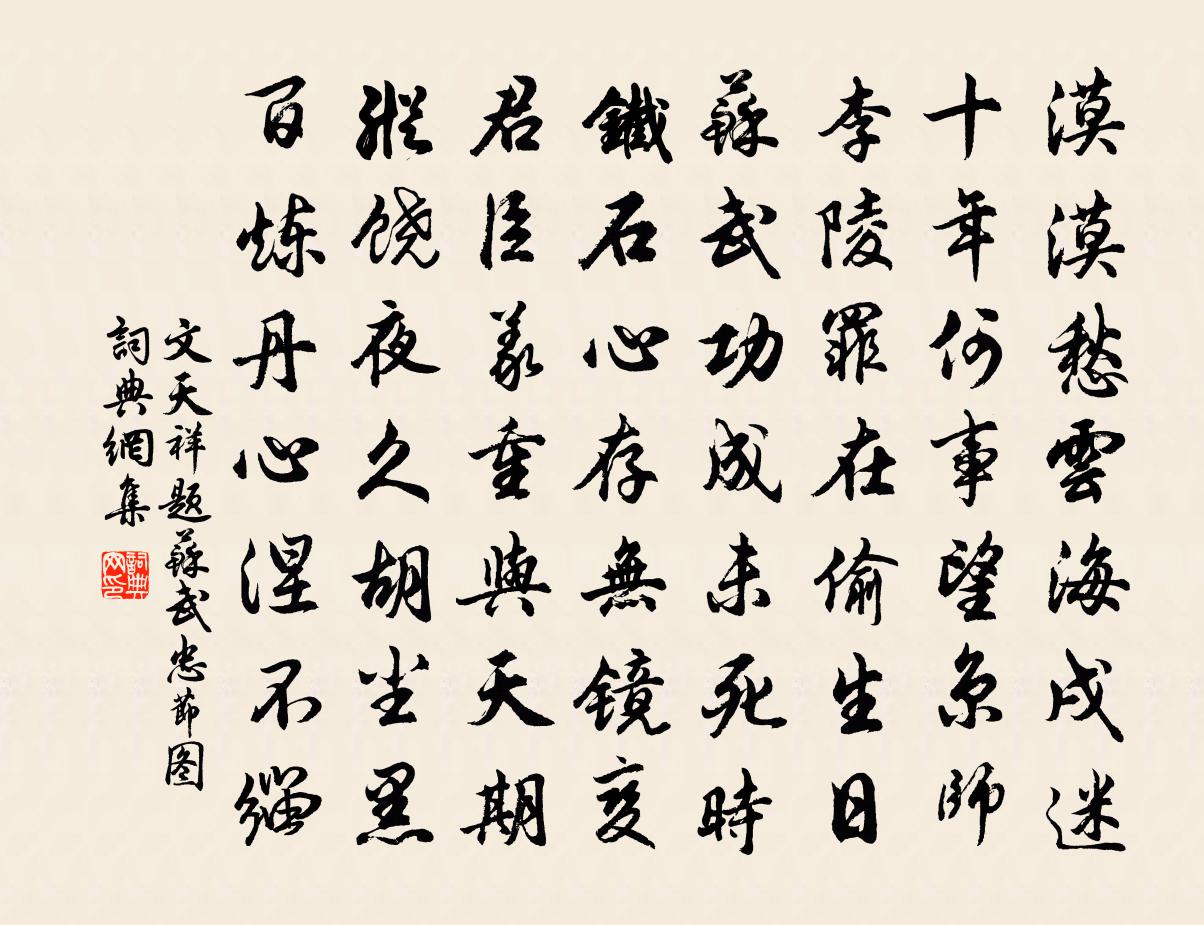 漠漠愁雲海戍迷
十年何事望京師
李陵罪在偷生日
蘇武功成未死時
鐵石心存無镜变
君臣義重與天期
縱饶夜久胡尘黑
百炼丹心涅不缁
文天祥题蘇武忠節图
詞典網集
詞典网印